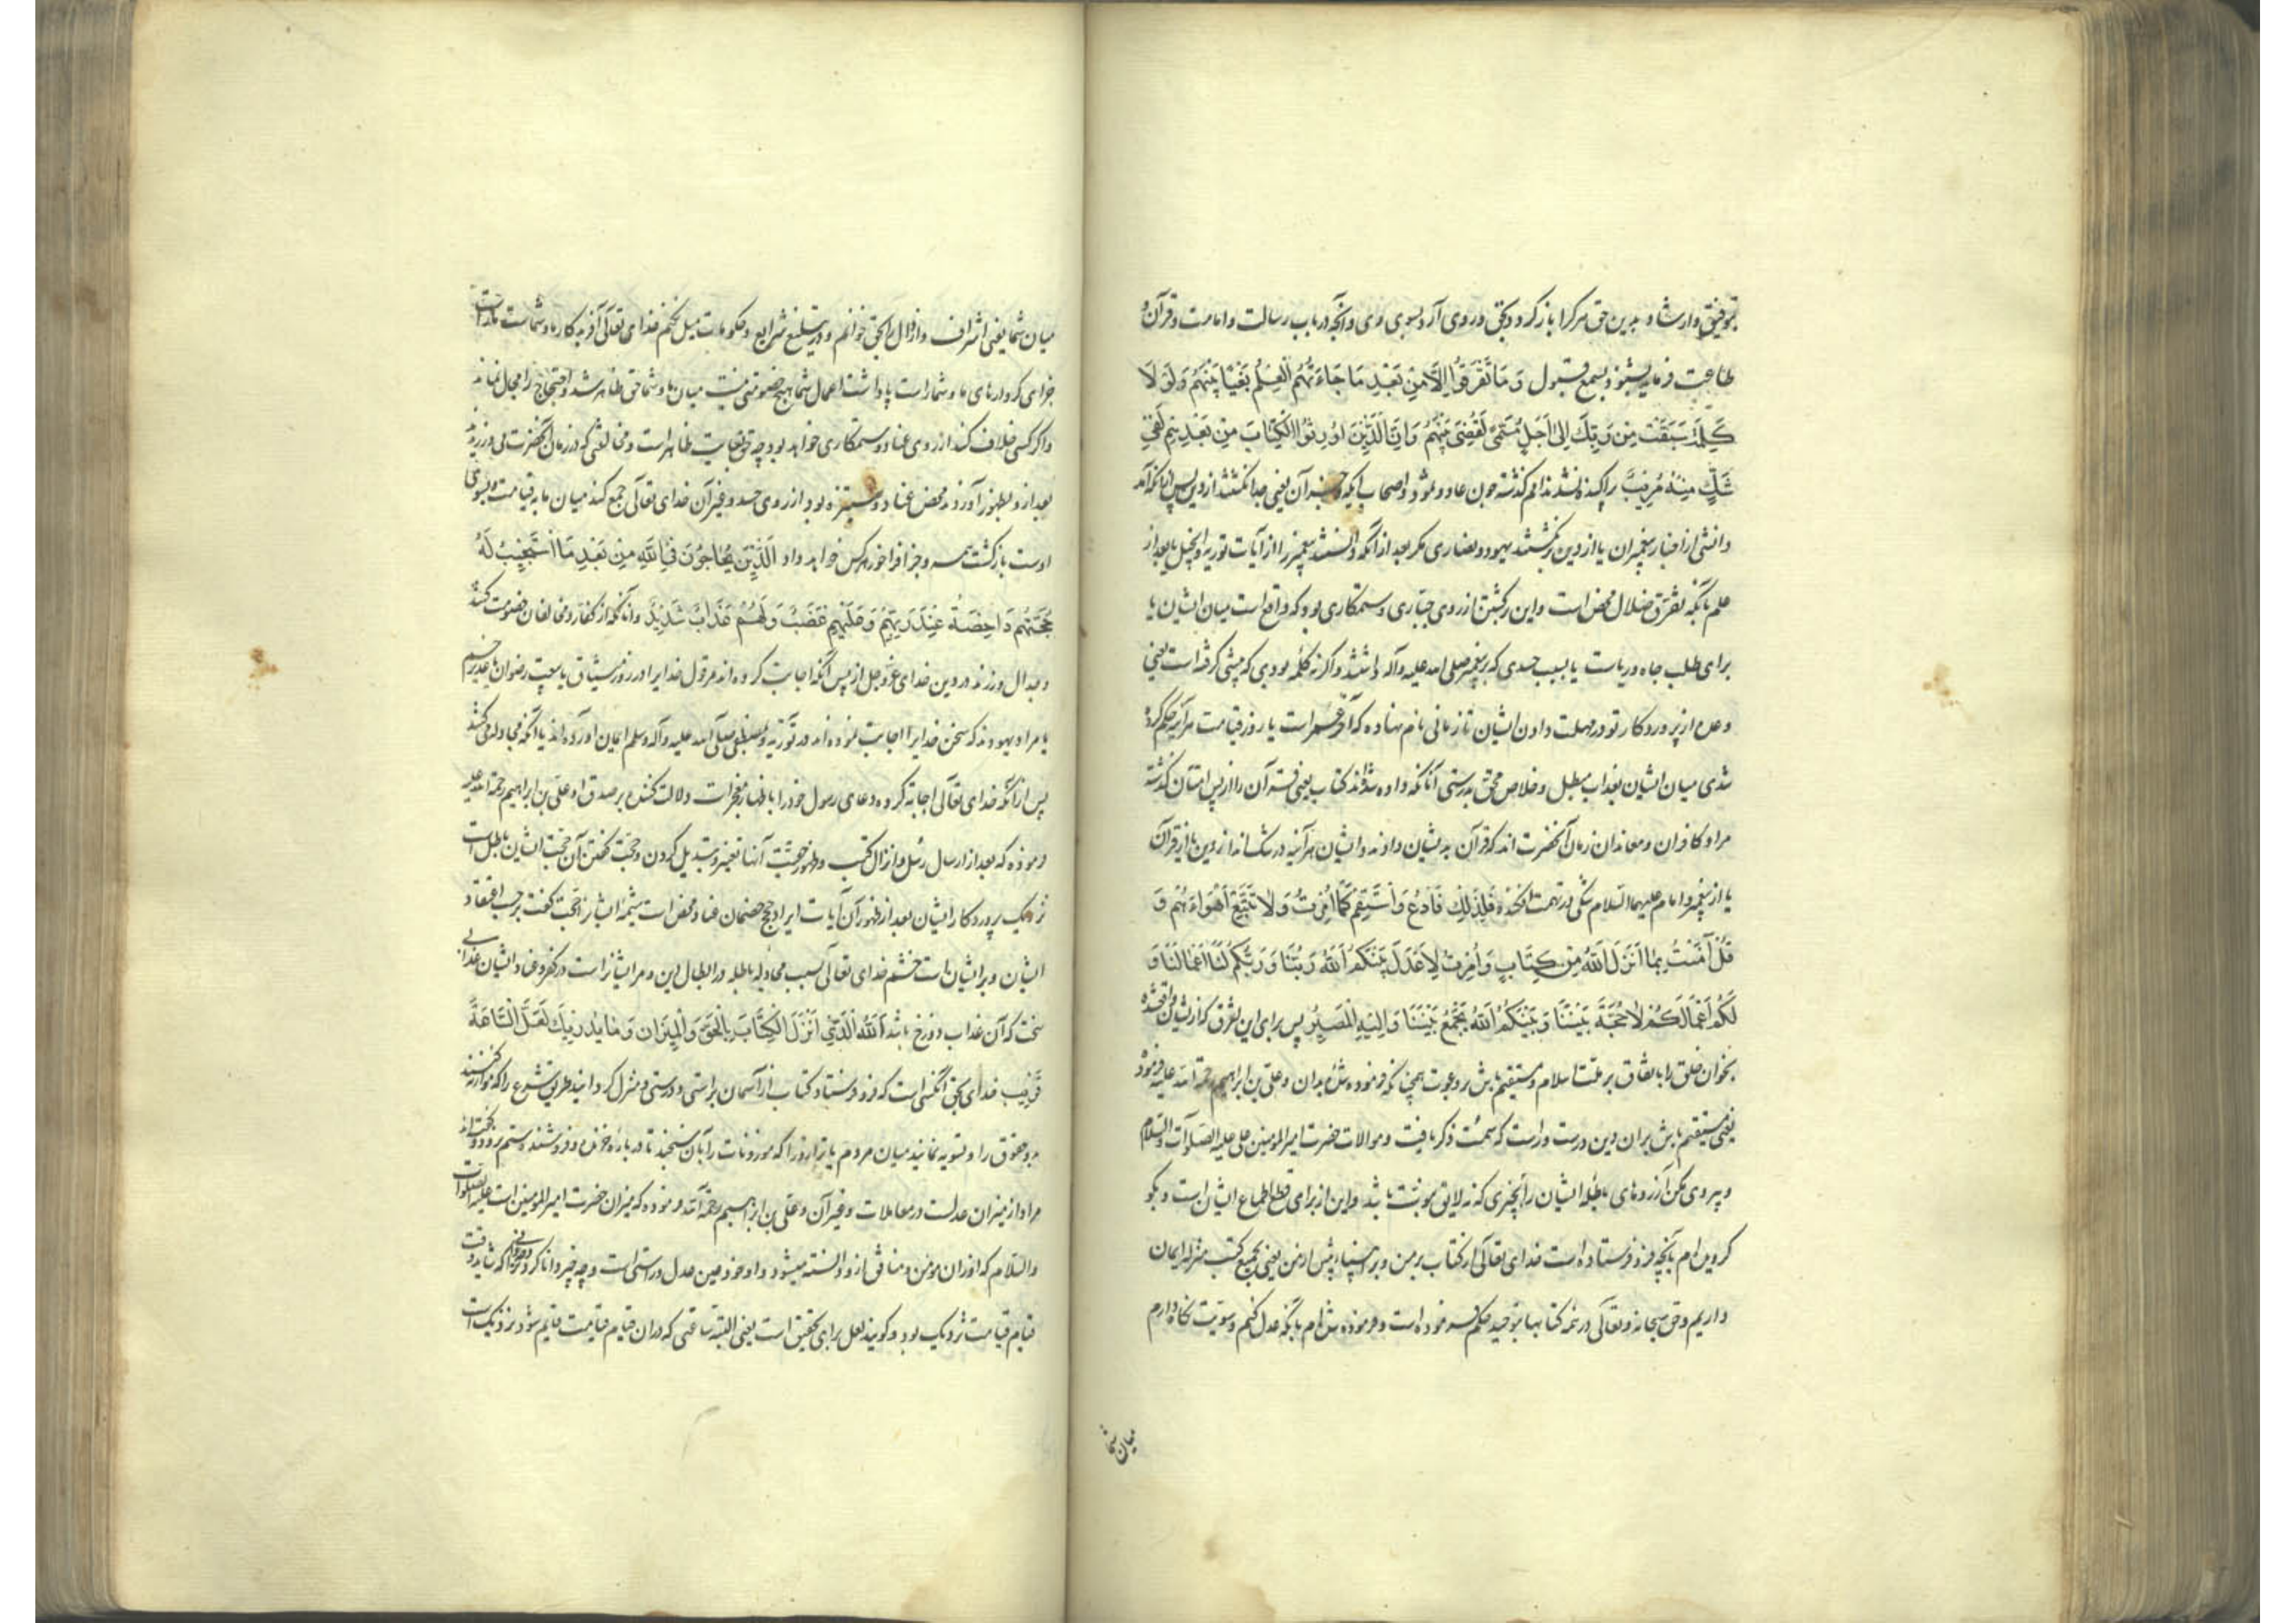 بتوفیق و ارشاد بدین حق هر کرا باز کردد بحق و روی آرد بسوی وی و آنچه در باب رسالت و امامت و قرآن و
طاعت فرماید بشنود بسمع قبول وَ مَا تَفَرَّقُوا اِلَّا مِنْ بَعْدِ مَا جَاءَهُمُ الْعِلْمُ بَغْيًا بَيْنَهُمْ وَ لَوْ لَا
كَلِمَةٌ سَبَقَتْ مِنْ رَبِّكَ اِلَى اَجَلٍ مُسَمًّى لَقُضِيَ بَيْنَهُمْ وَ اِنَّ الَّذِينَ اُورِثُوا الْكِتَابَ مِنْ بَعْدِهِمْ لَفِي
شَكٍّ مِنْهُ مُرِيبٍ پراکنده نشدند امم کذشته چون عاد و ثمود و اصحاب ایکه و جز آن یعنی جدا نکشتند از دین پس آنکه آمد
دانش از اخبار پیغمبران یا از دین برنکشتند یهود و نصاری مکر بعد از آنکه دانستند پیغمبر را از آیات توریة و انجیل یا بعد از
علم بآنکه تفرق ضلال محض است و این برکشتن از روی جباری و ستمکاری بود که واقع است میان ایشان یا
برای طلب جاه و ریاست یا بسبب حسدی که بر پیغمبر صلی الله علیه و آله داشتند و اکر نه کلمه بودی که پیشی کرفته است یعنی
وعده از پروردکار تو در مهلت دادن ایشان تا زمانی نام نهاده که آخر عمر است یا روز قیامت هرآینه حکم کرده
شدی میان ایشان بعذاب مبطل و خلاص محق بدرستی آنانکه داده شدند کتاب یعنی قرآن را از پس امتان کذشته
مراد کافران و معاندان زمان آنحضرت اند که قرآن بدیشان دادند و ایشان هرآینه در شک اند از دین یا از قرآن
یا از پیغمبر و امام علیهما السلام شکی در تهمت افکننده فَلِذَلِكَ فَادْعُ وَ اسْتَقِمْ كَمَا اُمِرْتَ وَ لَا تَتَّبِعْ اَهْوَاءَهُمْ وَ
قُلْ آمَنْتُ بِمَا اَنْزَلَ اللهُ مِنْ كِتَابٍ وَ اُمِرْتُ لِاَعْدِلَ بَيْنَكُمُ اَللهُ رَبُّنَا وَ رَبُّكُمْ لَنَا اَعْمَالُنَا وَ
لَكُمْ اَعْمَالُكُمْ لَا حُجَّةَ بَيْنَنَا وَ بَيْنَكُمُ اَللهُ يَجْمَعُ بَيْنَنَا وَ اِلَيْهِ الْمَصِيرُ پس برای این تفرق که از ایشان واقع شده
بخوان خلق را باتفاق بر ملت اسلام و مستقیم باش بر دعوت همچنانکه فرموده شده بدان و علی بن ابراهیم رحمة الله علیه فرموده
یعنی مستقیم باش بران دین درست و راست که سمت ذکر یافت و موالات حضرت امیر المومنین علی علیه الصلوات و السلام
و پیروی مکن آرزوهای باطله ایشان را بچیزی که نه لایق نبوت باشد و این از برای قطع اطماع ایشان است و بکو
کرویده ام بآنچه فرو فرستاده است خدای تعالی از کتاب بر من و بر انبیاء پیش از من یعنی بجمیع کتب منزله ایمان
داریم و حق سبحانه و تعالی در همه کتابها بتوحید حکم فرموده است و فرموده شده ام بآنکه عدل کنم و سویت نکاه دارم
میان شما
میان شما یعنی اشراف و ارذال را بحق خوانم و در تبلیغ شرایع و حکومات میل نکنم خدای تعالی آفریدکار ما و شما است ما راست
جزای کردارهای ما و شما راست پاداشت اعمال شما هیچ خصومتی نیست میان ما و شما حق ظاهر شد و احتجاج را مجال نماند
و اکر کسی خلاف کند از روی عناد و ستمکاری خواهد بود چه حق بغایت ظاهر است و مخالفتی که در زمان آنحضرت می ورزیدند
بعد ازو بظهور آوردند محض عناد و ستیزه بود از روی حسد و غیر آن خدای تعالی جمع کند میان ما بقیامت و بسوی
اوست بازکشت همه و جزا فراخور هر کس خواهد داد اَلَّذِينَ يُحَاجُّونَ فِي اللهِ مِنْ بَعْدِ مَا اسْتُجِيبَ لَهُ
حُجَّتُهُمْ دَاحِضَةٌ عِنْدَ رَبِّهِمْ وَ عَلَيْهِمْ غَضَبٌ وَ لَهُمْ عَذَابٌ شَدِيدٌ و آنانکه از کفار و مخالفان خصومت کنند
و جدال ورزند در دین خدای عز و جل از پس آنکه اجابت کرده اند مر قول خدایرا در روز میثاق یا بیعت رضوان یا غدیر خم
یا مراد یهودند که سخن خدایرا اجابت نموده اند در توریة و بمصطفی صلی الله علیه و آله و سلم ایمان آورده اند یا آنکه مجادله می کنند
پس از آنکه خدای تعالی اجابة کرده دعای رسول خود را باظهار معجزات دلالت کننده بر صدق او علی بن ابراهیم رحمة الله علیه
فرموده که بعد از ارسال رسل و انزال کتب و ظهور حجیت آنها تغییر و تبدیل کردن و حجت کفتن آن حجت ایشان باطل است
نزدیک پروردکار ایشان بعد از ظهور آن آیات ایراد حجج خصمان عناد محض است تسمیۀ ایشان را حجت کفت بر حسب اعتقاد
ایشان و بر ایشان است خشم خدای تعالی بسبب مجادله باطله در ابطال دین و مر ایشانراست در کفر و عناد ایشان عذابی
سخت که آن عذاب دوزخ باشد اَللهُ الَّذِي اَنْزَلَ الْكِتَابَ بِالْحَقِّ وَ الْمِيزَانَ وَ مَا يُدْرِيكَ لَعَلَّ السَّاعَةَ
قَرِيبٌ خدای بحق آنکسی است که فرو فرستاد کتاب از آسمان براستی و درستی و منزل کردانید طریق شرع را که موازنه کنند
بدو حقوق را و تسویه نمایند میان مردم یا ترازو را که موزونات را بآن سنجند تا در باره خرنده و فروشنده ستم نرود و کفته اند
مراد از میزان عدلست در معاملات و غیر آن و علی بن ابراهیم رحمة الله فرموده که میزان حضرت امیر المومنین است علیه الصلوات
و السلام که از ان مومن و منافق ازو دانسته میشود و او خود عین عدل و راستی است و چه چیز دانا کرد ترا که شاید وقت
قیام قیامت نزدیک بود و کویند لعل برای تحقیق است یعنی البته ساعتی که دران قیام قیامت قایم شود نزدیک است